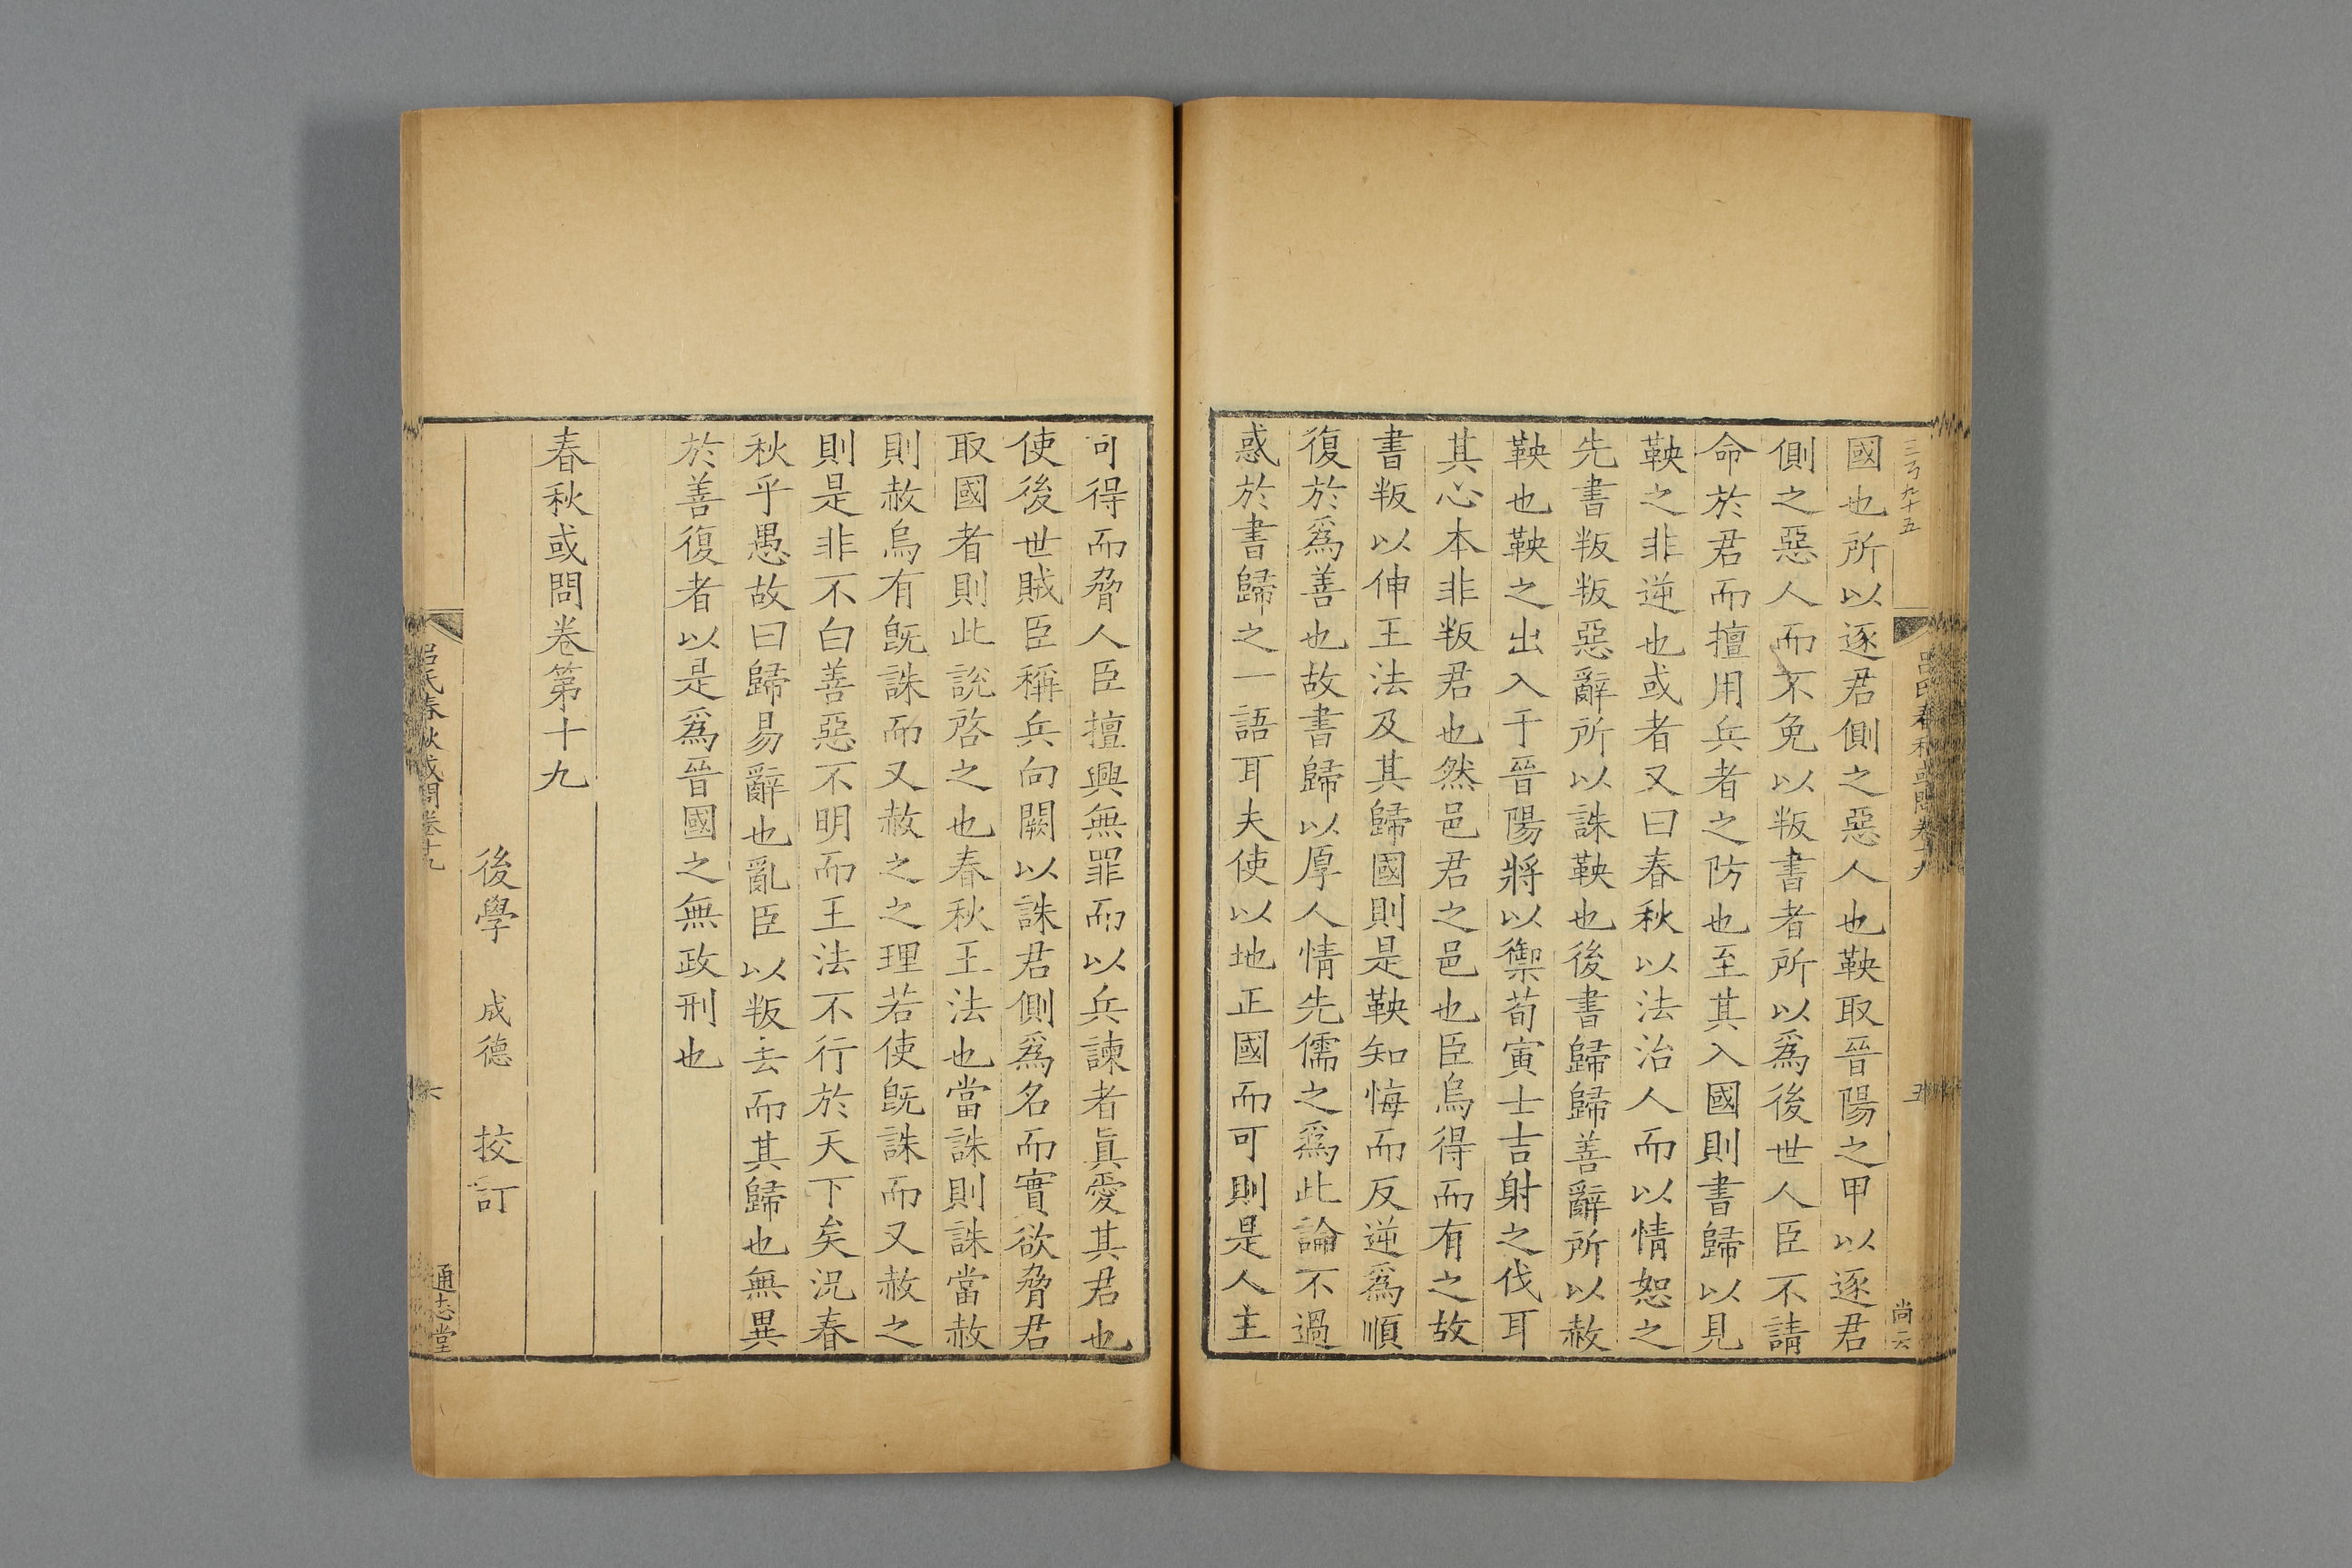 國也所以逐君側之惡人也鞅取晉陽之甲以逐君
側之惡人而不免以叛書者所以爲後世人臣不請
命於君而擅用兵者之防也至其入國則書歸以見
鞅之非逆也或者又曰春秋以法治人而以情恕之
先書叛叛惡辭所以誅鞅也後書歸歸善辭所以赦
鞅也鞅之出入于晉陽將以禦荀寅士吉射之伐耳
其心本非叛君也然邑君之邑也臣烏得而有之故
書叛以伸王法及其歸國則是鞅知悔而反逆爲順
復於爲善也故書歸以厚人情先儒之爲此論不過
惑於書歸之一語耳夫使以地正國而可則是人主
可得而脅人臣擅興無罪而以兵諫者眞愛其君也
使後世賊臣稱兵向闕以誅君側爲名而實欲脅君
取國者則此說啓之也春秋王法也當誅則誅當赦
則赦烏有旣誅而又赦之之理若使旣誅而又赦之
則是非不白善惡不明而王法不行於天下矣況春
秋乎愚故曰歸易辭也亂臣以叛去而其歸也無異
於善復者以是爲晉國之無政刑也
春秋或問卷第十九
後學 成德 挍訂
呂氏春秋或問卷十九
五
尚云
呂氏春秋或問卷十九
六
通志堂